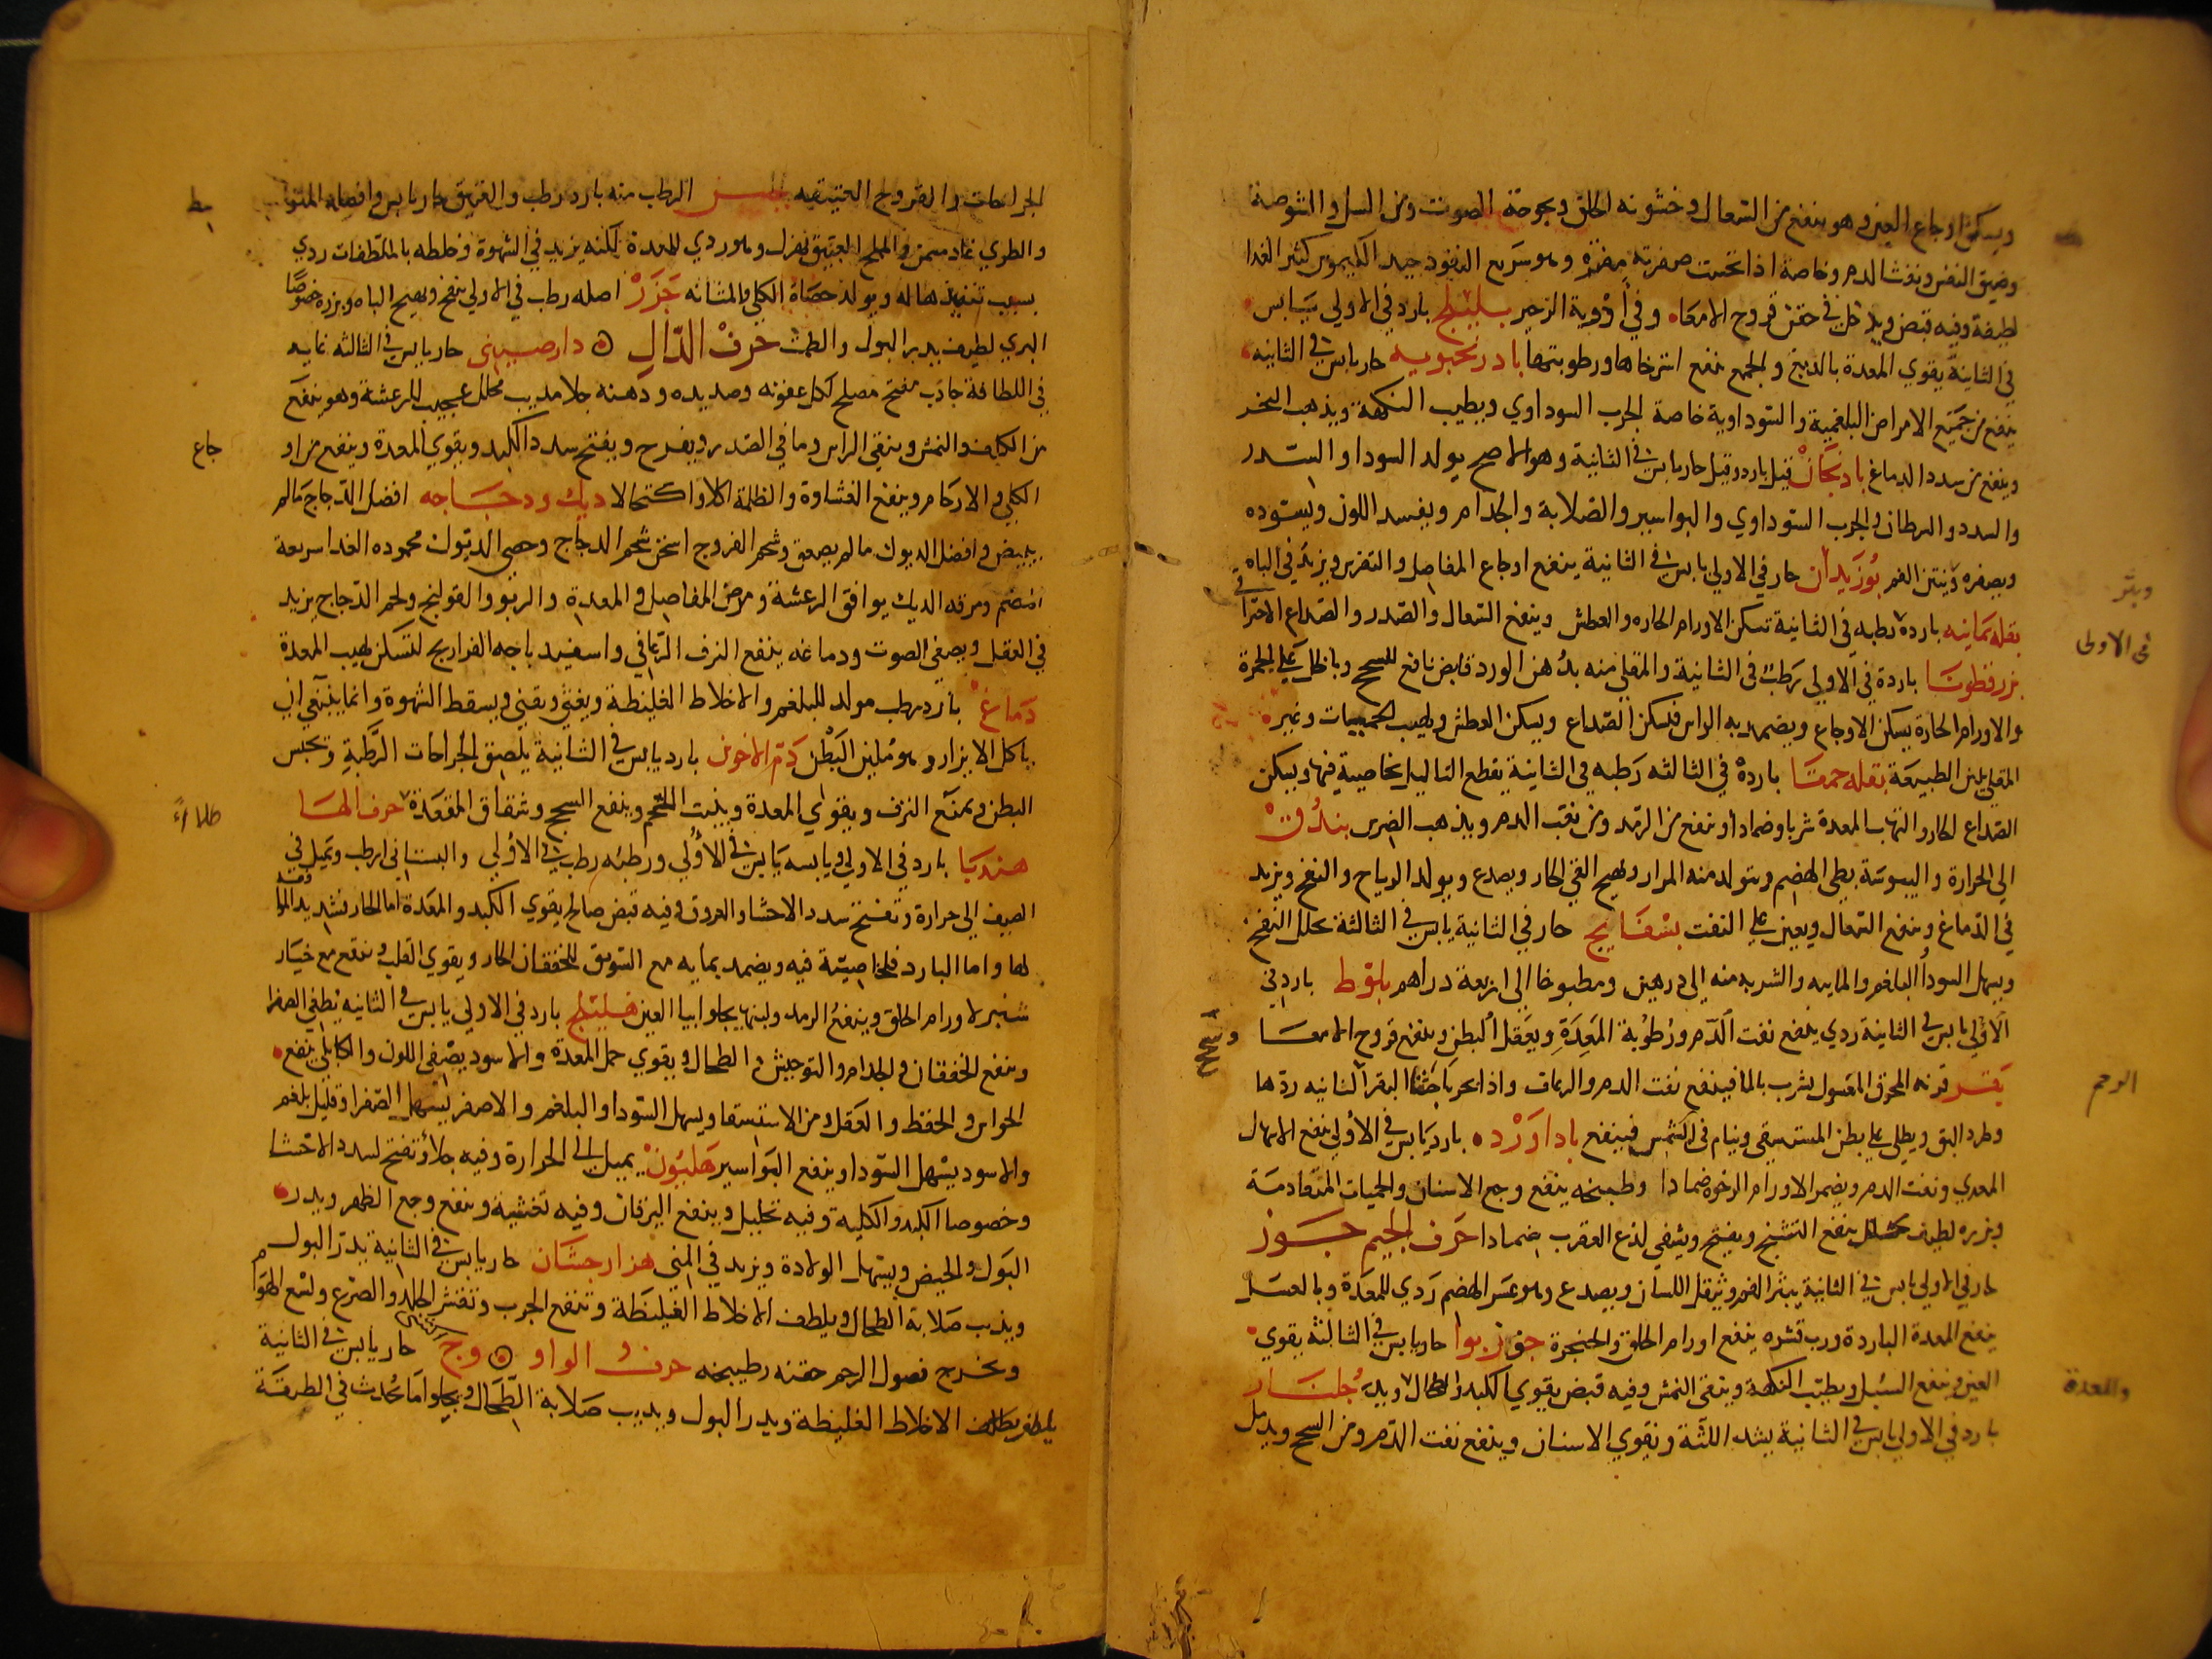 ويسكن اوجاع العين وهو ينفع من السعال وخشونه الحلق وبحوحة الصوت ومن السل والشوصة
وضيق النفس ونفث الدم وخاصة اذا تحست صفرته مفترة وهو سريع النفوذ جيد الكيموس كثير الغذا
لطيفة وفيه قبض ويدخل في حقن قروح الامعاء وفي أدوية الزحير بليلج بارد في الاولي يابس
في الثانية يقوي المعدة بالدبغ والجمع ينفع استرخاها ورطوبتها بادرنجبويه حار يابس في الثانيه
ينفع من جميع الامراض البلغمية والسوداوية خاصة الجرب السوداوي ويطيب النكهة ويذهب البخر
وينفع من سدد الدماغ بادنجان قيل بارد وقيل حار يابس في الثانية وهو الاصح يولد السودا والسدر
والسدد والسرطان والجرب السوداوي والبواسير والصلابة والجدام ويفسد اللون ويسوده
ويصفره وينتن الفم بوزيدان حار في الاولي يابس في الثانية ينفع اوجاع المفاصل والنقرس ويزيد في الباه
بقله يمانيه بارده رطبه في الثانية تسكن الاورام الحاره والعطش وينفع السعال والصدر والصداع الاحتراقي
بزرقطونا باردة في الاولي رطب في الثانية والمقلي منه بدهن الورد قابض نافع للسحج وباخل علي الجمرة
والاورام الحادة يسكن الاوجاع ويضمد به الراس فيسكن الصداع ويسكن العطش ولهيب الحميات وغير
المقلي يلين الطبيعة بقله حمقا باردة في الثالثه رطبه في الثانية يقطع الثاليل بخاصية فيها ويسكن
الصداع الحار والتهاب المعدة شربا وضمادا وتنفع من الرمد ومن نفث الدم ويذهب الضرس بندق
الي الحرارة واليبوسة بطي الهضم ويتولد منه المرار ويهيج القي الحار ويصدع ويولد الرياح والنفخ ويزيد
في الدماغ وينفع السعال ويعين علي النفث بسفايج حار في الثانية يابس في الثالثة يحلل النفخ
ويسهل السودا والبلغم والماييه والشربه منه الي درهمين ومطبوخا الي اربعة دراهم بلوط بارد في
الاولي يابس في الثانية ردي ينفع نفث الدم ورطوبة المعدة ويعقل البطن وينفع قروح الامعا
بقر قرنه المحرق المغسول يشرب بالما فينفع نفث الدم والرعاف واذا بخر باخثا البقر الثانيه ردها
وطرد البق ويطلي علي بطن المستسقي وينام في الشمس فينفع باداورد بارد يابس في الاولي ينفع الاسهال
المعدي ونفث الدم ويضمر الاورام الرخوة ضمادا وطبيخه ينفع وجع الاسنان والحميات المتقادمة
وبزره لطيف محلل ينفع التشنج ويفتح ويشفي لذع العقرب ضمادا حرف الجيم جوز
حار في الاولي يابس في الثانية يبثر الفم ويثقل اللسان ويصدع وهو عسر الهضم ردي للمعدة وبالعسل
ينفع المعدة الباردة ورب قشره ينفع اورام الحلق والحنجرة جوزبوا حار يابس في الثالثة يقوي
العين وينفع السبل ويطيب النكهة وينقي النمش وفيه قبض يقوي الكبد والطحال ويد جلنار
بارد في الاولي يابس في الثانية يشد اللثة ويقوي الاسنان وينفع نفث الدم ومن السحج ويدمل
في الاولى
الرحم
والمعدة
الجراحات والقروح العتيقه الرطب منه بارد رطب والعتيق حار يابس وافضله المتوسط
والطري غاد مسمن والملح العتيق يهزل وهو ردي للمعدة لكنه يزيد في الشهوة وخلطه بالملطفات ردي
بسبب تنفيذها له ويولد حصاة الكلي والمثانه جزر اصله رطب في الاولي ينفخ ويهيج الباه وبزره خصوصا
البري لطيف يدر البول والطمث حرف الدال دارصيني حار يابس في الثالثه غايه
في اللطافة جاذب مفتح مصلح لكل عفونه وصديده ودهنه جلا مذيب محلل عجيب للرعشة وهو ينفع
من الكلف والنمش وينقي الراس وما في الصدر ويفرح ويفتح سدد الكبد ويقوي المعدة وينفع من او جاع
الكلي والارحام وينفع الغشاوة والظلمة اكلا واكتحالا ديك ودجاجه افضل الدجاج مالم
يبيض وافضل الديوك مالم يصعق وشحم الفروج اسخن شحم الدجاج وخصي الديوك محموده الغدا سريعة
الهضم ومرقه الديك يوافق الرعشة ومرض المفاصل والمعدة والربو والقولنج ولحم الدجاج يزيد
في العقل ويصفي الصوت ودماغه ينفع النزف الرعافي واسفيد باجه الفراريج لتسكن لهيب المعدة
دماغ بارد رطب مولد للبلغم والاخلاط الغليظة ويغثي ويقيي ويسقط الشهوة وانما ينبغي ان
ياكل الابزار وهو ملين البطن دم الاخوين بارد يابس في الثانية يلصق الجراحات الرطبة وتحبس
البطن ويمنع النزف ويقوي المعدة وينبت اللحم وينفع السحج وشقاق المقعدة حرف الها طلاءً
هندبا بارد في الاولي ويابسه يابس في الاولي ورطبه رطب في الاولي والبستاني ارطب وتميل في
الصيف الي حرارة وتفتح سدد الاحشا والعروق وفيه قبض صالح يقوي الكبد والمعدة اما الحار فشديد الموا فقه
لها واما البارد فلخاصيته فيه ويضمد بمايه مع السويق للخفقان الحار ويقوي القلب وينفع مع خيار
شنبر لاورام الحلق وينفع الرمد ولبنها يجلو ابيا العين هليلج بارد في الاولي يابس في الثانيه يطفي الصفرا
وينفع الخفقان والجدام والتوحش والطحال ويقوي خمل المعدة والاسود يصفي اللون والكابلي ينفع
الحواس والحفظ والعقل ومن الاستسقا ويسهل السودا والبلغم والاصفر يسهل الصفرا وقليل بلغم
والاسود يسهل السودا وينفع البواسير هليون يميل الي الحرارة وفيه جلا وتفتح لسدد الاحشا
وخصوصا الكبد والكلية وفيه تحليل وينفع اليرقان وفيه تغثية وينفع وجع الظهر ويدر
البول والحيض ويسهل الولادة ويزيد في المني هزارجشان حار يابس في الثانية يدر البول
ويذيب صلابة الطحال ويلطف الاخلاط الغليظة وتنفع الجرب وتقشر الجلد والصرع ولسع الهوام
ويخرج فضول الرحم حقنه وطبيخه حرف الواو وج حار يابس في الثانية
يلطف الاخلاط الغليظة ويدر البول ويذيب صلابة الطحال ويجلو اما يحدث في الطبقة